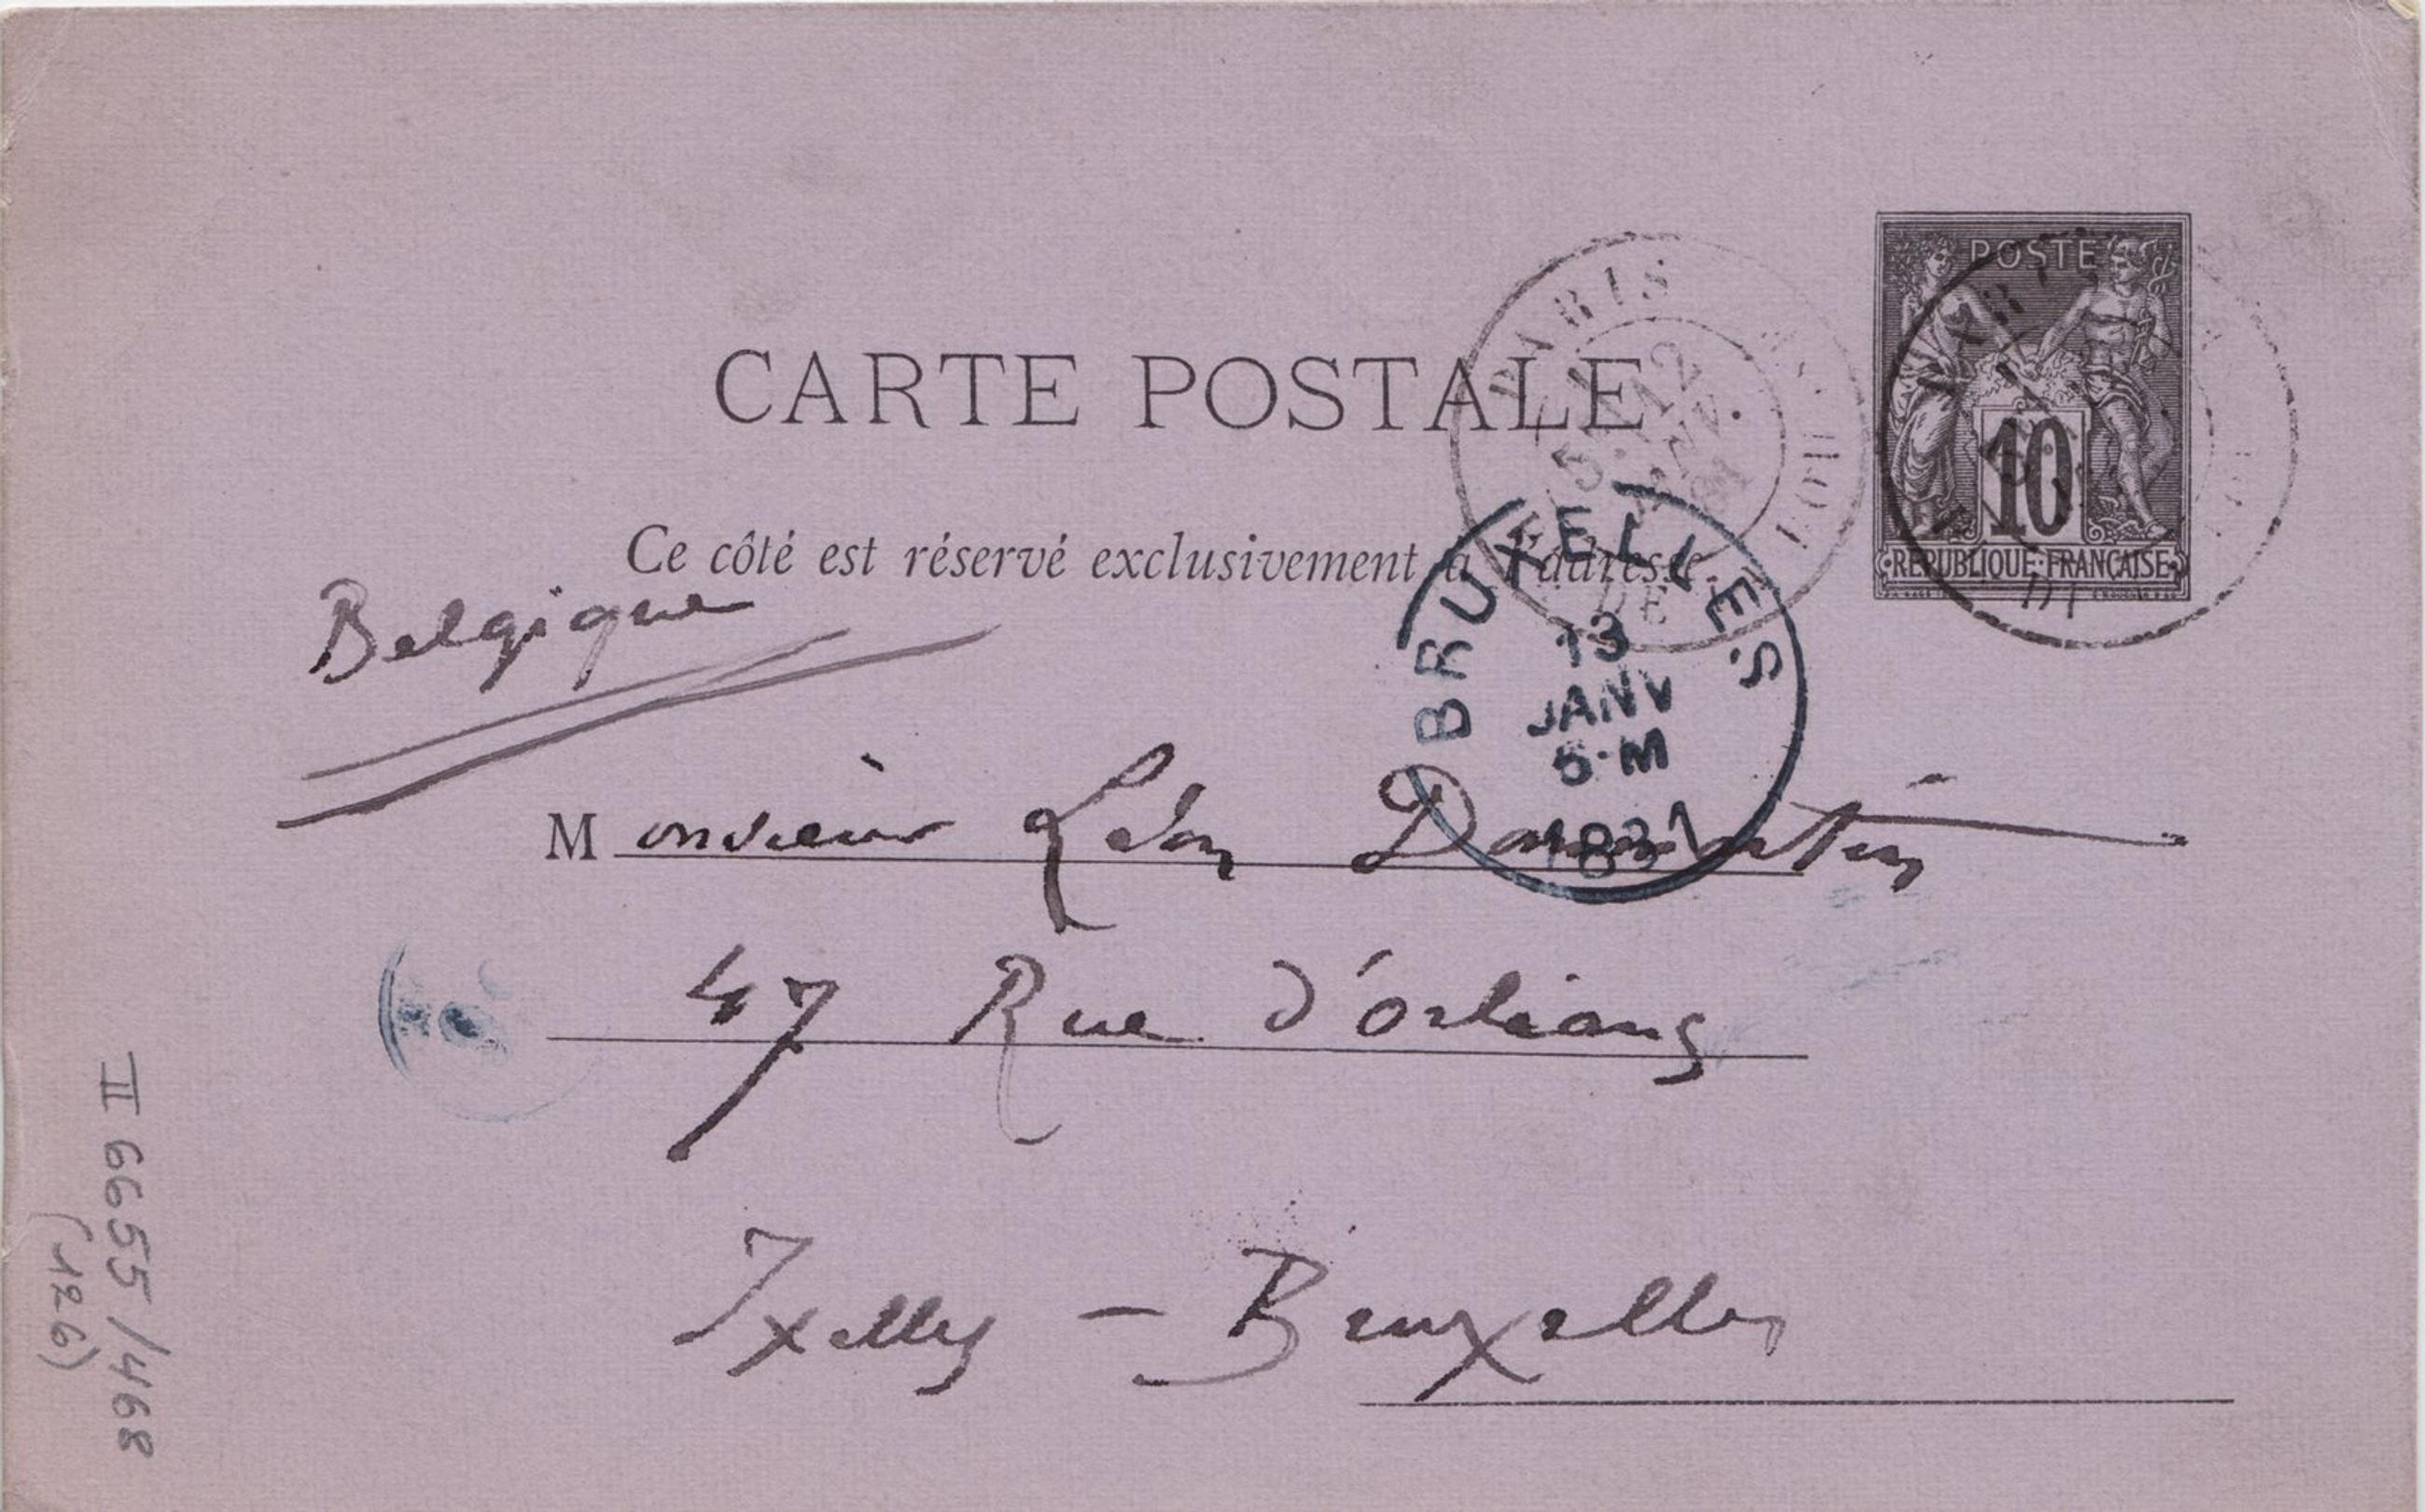 POSTE
10
REPUBLIQUE FRANÇAISE
PARIS
12
CARTE POSTALE
Ce côté est réservé exclusivement à l'adresse.
Belgique
BRUXELLES
13
JANV
5-M
Monsieur Léon
47 Rue d'Orléans
Ixelles - Bruxelles
II 6655/468
(126)